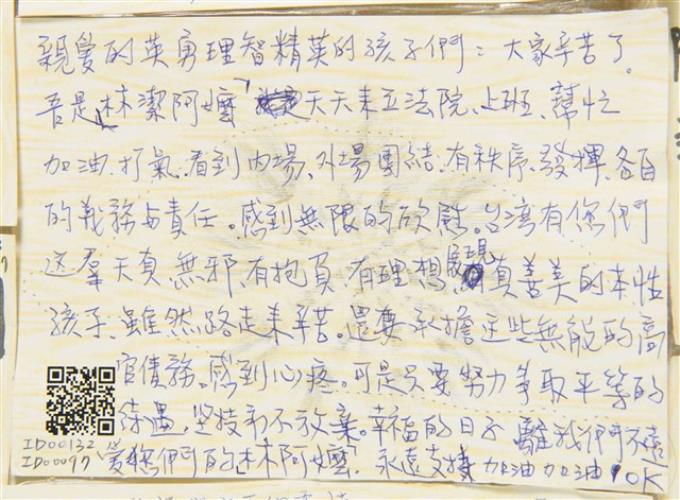 親愛的英勇理智精英的孩子們：大家辛苦了。
吾是「林潔阿嬤」天天來立法院、上班、幫忙
加油、打氣、看到內場、外場團結、有秩序、發揮、各自
的義務与責任。感到無限的欣慰。台湾有您們
这羣天真、無邪、有抱負、有理想、展現真善美的本性
孩子、雖然路走来辛苦。還要承擔这些無能的高
官債務。感到心疼。可是只要努力争取平等的
待遇、坚持而不放棄。幸福的日子離我們不遠
ID00132
ID00097
愛您們的「林阿嬤」永遠支持加油加油OK